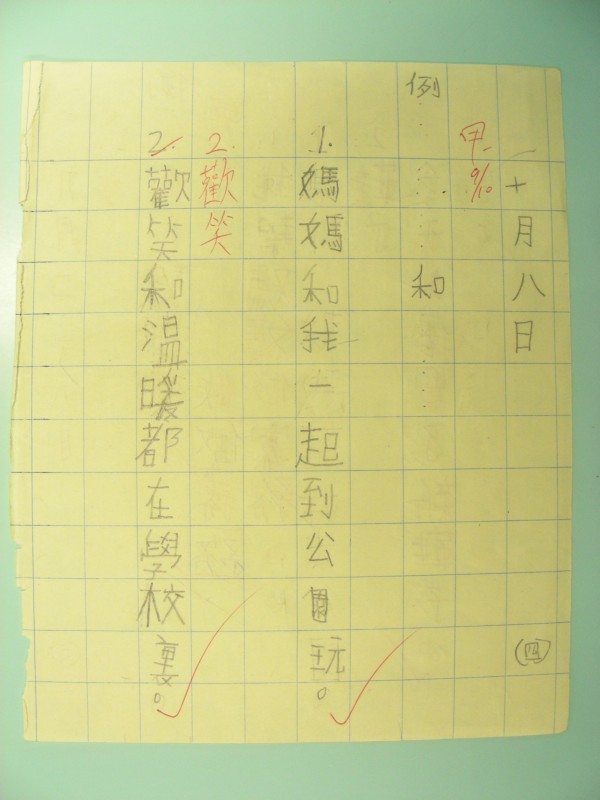 十月八日(四)
甲. 9/10
例……和……
1.媽媽和我一起到公園玩。
2.歡笑
2.歡笑和溫暖都在學校裏。